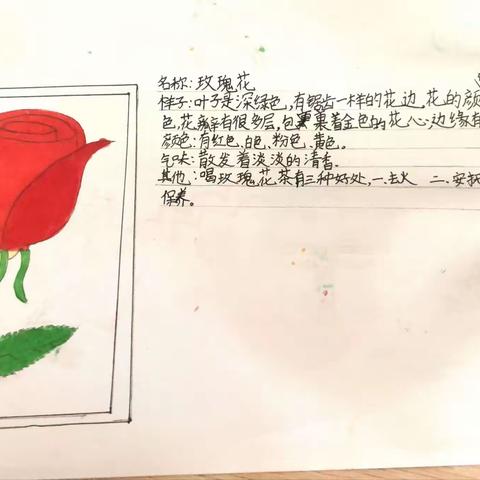 名称：玫瑰花
样子：叶子是深绿色，有锯齿一样的花边，花的颜
色，花瓣有很多层，包裹着金色的花心边缘有
颜色：有红色、白色、粉色、黄色。
气味：散发着淡淡的清香。
其他：喝玫瑰花茶有三种好处，一.去火 二、安抚
保养。